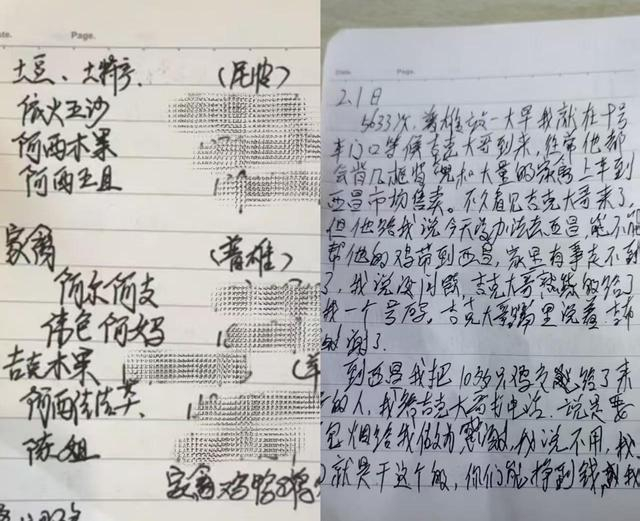 ate.
Page.
土豆、土特产 (尼波)
依火五沙
阿西木果
阿西五且
家禽 (普雄)
阿尔阿支
伟色阿妈
吉克木果
阿西佳佳
陈姐
家禽鸡鸭
Date.
Page.
2.1日
5633次,普雄站一大早我就在十号
车门口等候吉克大哥到来,经常他都
会背几框鸡鸭和大量的家禽上车到
西昌市场售卖。不久看见吉克大哥来了,
但他给我说今天没办法去西昌,能不能
帮他的鸡带到西昌,家里有事走不到
了,我说没问题吉克大哥熟练的给了
我一个号码。吉克大哥嘴里说着吉
谢了。
到西昌我把10多只鸡交给了来
的人,我给吉克大哥打电话一说是要
包烟给我做,我说不用,我
就是干这个的,你们能挣到钱,我